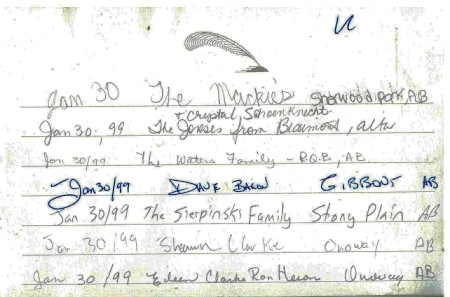 Jan 30 The Mackie's Sherwood Park AB
+ Crystal Schoenknecht
Jan 30, 99 The Joneses from Beaumont, alta
Jan 30/99 The Waters Family - R.Q.B, AB.
Jan 30/99 DAVE BAKON GIBBONS AB
Jan 30/99 The Sierpinski Family Stony Plain AB
Jan 30/99 Shawn Clarke Onoway AB
Jan 30/99 Eileen Clarke Ron Heron Onoway AB